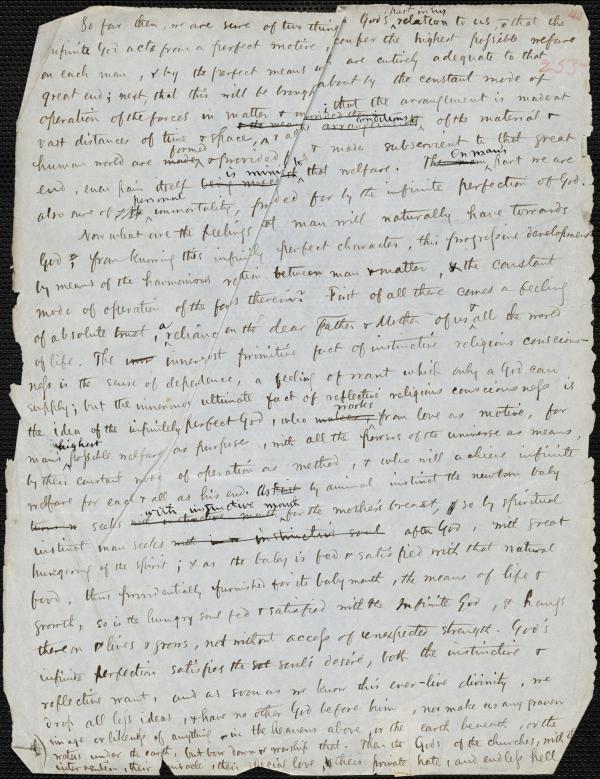 So far then, we are sure of two things God's part in his relation to us, & that the
infinite God acts from a perfect motive, confer the highest possible welfare
on each man, & by the perfect means we are entirely adequate to that
great end; next, that this will be brought about by the constant mode of
operation of the forces in matter & m ; that the arrangement is made at
vast distances of time & space, & a conditions of the material &
human world are formed & provided & made subservient to that great
end, even pain itself is minis to that welfare. On man's part we are
also sure of personal immortality, provided for by the infinite perfection of God.
Now what are the feelings that man will naturally have towards
God; from knowing this infinitely perfect character, this progressive development
by means of the harmonious relation between man & matter, & the constant
mode of operation of the forces therein? First of all there comes a feeling
of absolute trust, a reliance on the dear Father & Mother of us & all the world
of life. The innermost primitive fact of instinctive religious conscious-
ness is the sense of dependence, a feeling of want which only a God can
supply; but the innermost ultimate fact of reflective religious consciousness is
the idea of the infinitely perfect God, who works from love as motive, for
man's highest possible welfare as purpose, with all the forces of the universe as means,
by their constant mode of operation as method, & who will achieve infinite
welfare for each & all as his end. As by animal instinct the newborn baby
seeks with instinctive mouth for the mother's breast, so by spiritual
instinct man seeks after God, with great
hungering of the spirit; & as the baby is fed & satisfied with that natural
food, thus providentially furnished for its baby mouth, the means of life &
growth, so is the hungry soul fed & satisfied with the Infinite God, & hangs
thereon & lives & grows, not without access of unexpected strength. God's
infinite perfection satisfies the soul's desire, both the instinctive &
reflective want, and as soon as we know this ever-live divinity, we
drop all less ideas, & have no other God before him, nor make us any graven
image or likeness of anything in the heavens above, or the earth beneath, or the
waters under the earth, but bow down & worship that. Then the Gods of the churches, with their
intervention, their miracle, their special love & their private hate, and endless hell